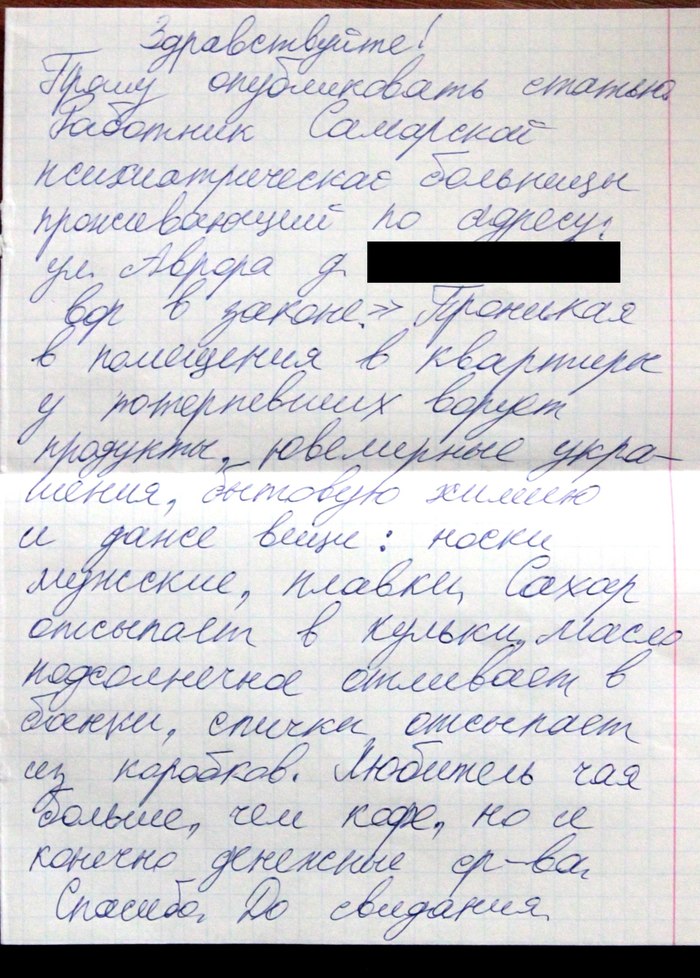 Здравствуйте!
Прошу опубликовать статью.
Работник Самарской
психиатрической больницы
проживающий по адресу:
ул. Аврора д.
вор в законе.» Проникая
в помещения в квартиры
у потерпевших ворует
продукты, ювелирные укра-
шения, бытовую химию
и даже вещи: носки
мужские, плавки, Сахар
отсыпает в кульки, масло
подсолнечное отливает в
банки, спички отсыпает
из коробков. Любитель чая
больше, чем кофе, но и
конечно денежные ср-ва.
Спасибо. До свидания.